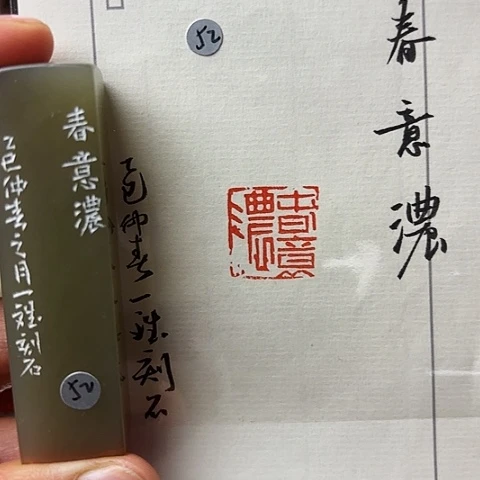 春意濃
52
春意濃
乙巳仲春一刻石
春意濃
乙巳仲春之月一刻石
52